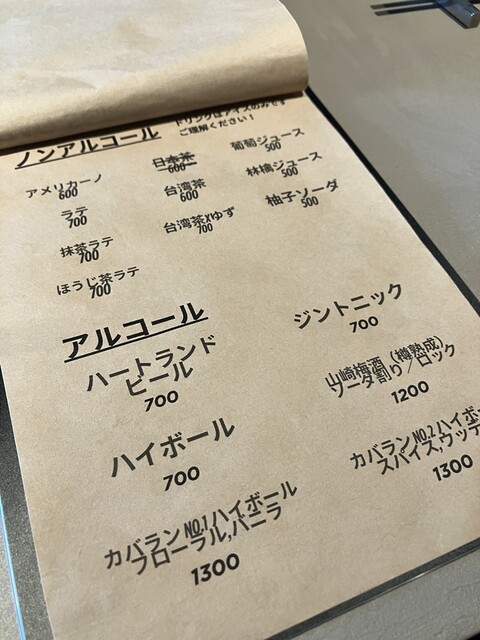 ドリンクはアイスのみです
ご理解ください!
ノンアルコール
アメリカーノ
600
ラテ
700
抹茶ラテ
700
ほうじ茶ラテ
700
日本茶
600
台湾茶
600
台湾茶xゆず
700
葡萄ジュース
500
林檎ジュース
500
柚子ソーダ
500
アルコール
ハートランド
ビール
700
ハイボール
700
カバラン NO.1 ハイボール
フローラル,バニラ
1300
ジントニック
700
山崎梅酒(樽熟成)
ソーダ割り/ロック
1200
カバラン NO.2 ハイボ
スパイス,ウッデ
1300